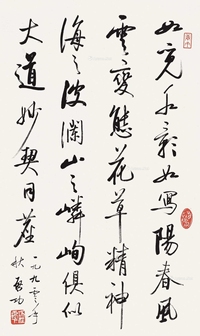 如覓水影如寫陽春風
雲變態花草精神
海之波瀾山之嶙峋俱似
大道妙契同塵
一九九零年
秋启功